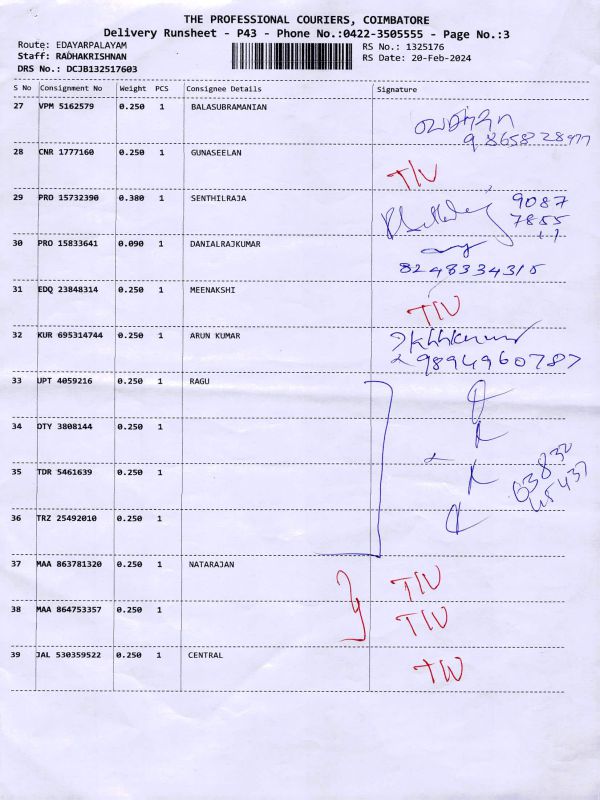 THE PROFESSIONAL COURIERS, COIMBATORE
Delivery Runsheet - P43 - Phone No.:0422-3505555 - Page No.:3
Route: EDAYARPALAYAM RS No.: 1325176
Staff: RADHAKRISHNAN RS Date: 20-Feb-2024
DRS No.: DCJB132517603
S No Consignment No Weight PCS Consignee Details Signature
27 VPM 5162579 0.250 1 BALASUBRAMANIAN
28 CNR 1777160 0.250 1 GUNASEELAN
T/V
29 PRO 15732390 0.380 1 SENTHILRAJA 9087
7855
30 PRO 15833641 0.090 1 DANIALRAJKUMAR
8248334315
31 EDQ 23848314 0.250 1 MEENAKSHI
T/V
32 KUR 695314744 0.250 1 ARUN KUMAR
9894960787
33 UPT 4059216 0.250 1 RAGU
34 OTY 3808144 0.250 1
63832
45437
35 TDR 5461639 0.250 1
36 TRZ 25492010 0.250 1
37 MAA 863781320 0.250 1 NATARAJAN T/V
38 MAA 864753357 0.250 1 T/V
39 JAL 530359522 0.250 1 CENTRAL T/V